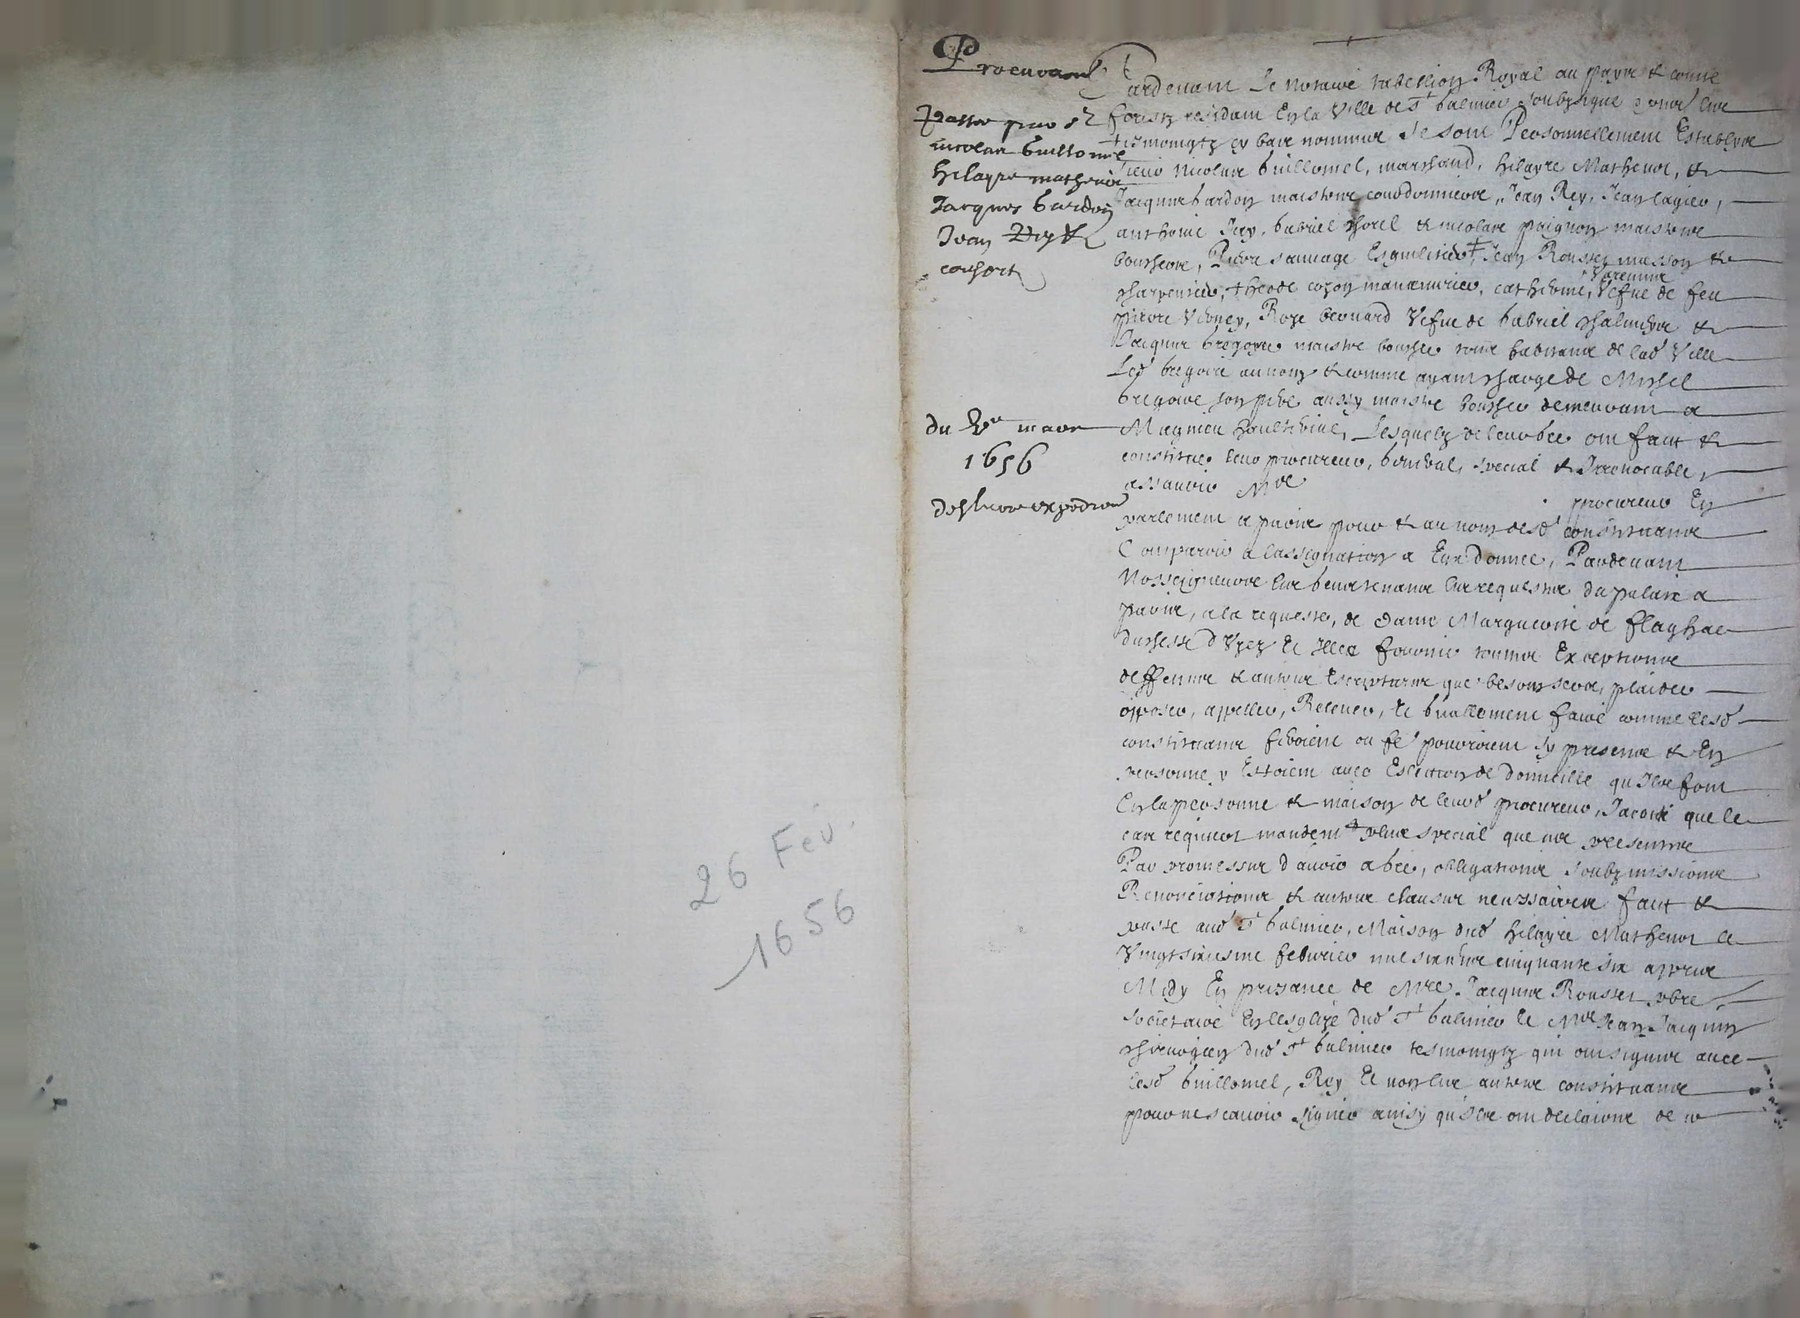 26 Fev.
1656
Procuration
Passée par sr
nicolas Guillomel
hilayre mathevot
Jacques bardon
Jean Rey &
consorts
du mars
1656
expedition
Pardevant le notaire tabellion Royal au payis & conté
forestz residant En la Ville de St Galmier soubzsigné
tesmoingtz cy bas nommes se sont Personnellement Establys
sieur Nicolas Guillomel, marchand, hilayre Mathevot, &
Jacques bardon maistres courdonniers, Jean Rey, Jean lagier,
anthoine Rey, Gabriel & nicolas poignon maistres
bouchers, Pierre sauvage Jean Rousset masson &
charpentier, coson manouvrier, catherine, Varenne Vefue de feu
pierre Verney, Roze berard Vefue de Gabriel &
Jacques Gregoire maistre boucher tous habitants de lad Ville
Led Gregoire au nom & comme ayant charge de Michel
Gregoire son pere aussy maistre boucher demeurant a
lesquelz de leur gré ont faict &
constitué leur procureur, General, special & Irrevocable,
assavoir Me
procureur En
parlement a paris pour & au nom desd constituants
Comparoir a lassignation a Eux donnée, Pardevant
Nosseigneurs les tenants les requestes du palais a
paris, a la requeste, de dame Marguerite de flaghac
duchesse d'Uzez Et Illec fournir toutes Exceptions
deffences & autres Escriptures que besoing sera, plaider
opposer, appeller, Relever, Et Generallement faire comme lesd
constituants feroient ou fe pourroient sy presents & En
personne y Estoient avec Eslection de domicille qu'Ils font
En la personne & maison de leurd procureur, Jacoit que le
cas requiert mandement plus special que ces presentes
Par promesses d'avoir a gré, obligations soubzmissions
Renonciations & autres clauses necessaires faict &
passé aud St Galmier, Maison dud hilayre Mathevot le
Vingtsixiesme febvrier mil six cents cinquante six appres
Midy En presance de Mre Jacques Rousset pbre
societaire En lesglize dud St Galmier Et Me Jean Jacquin
chirurgien dud St Galmier tesmoingtz qui ont signes avec
lesd Guillomel, Rey Et non les autres constituants
pour ne scavoir signer ainsy qu'Ils ont declairé de ce